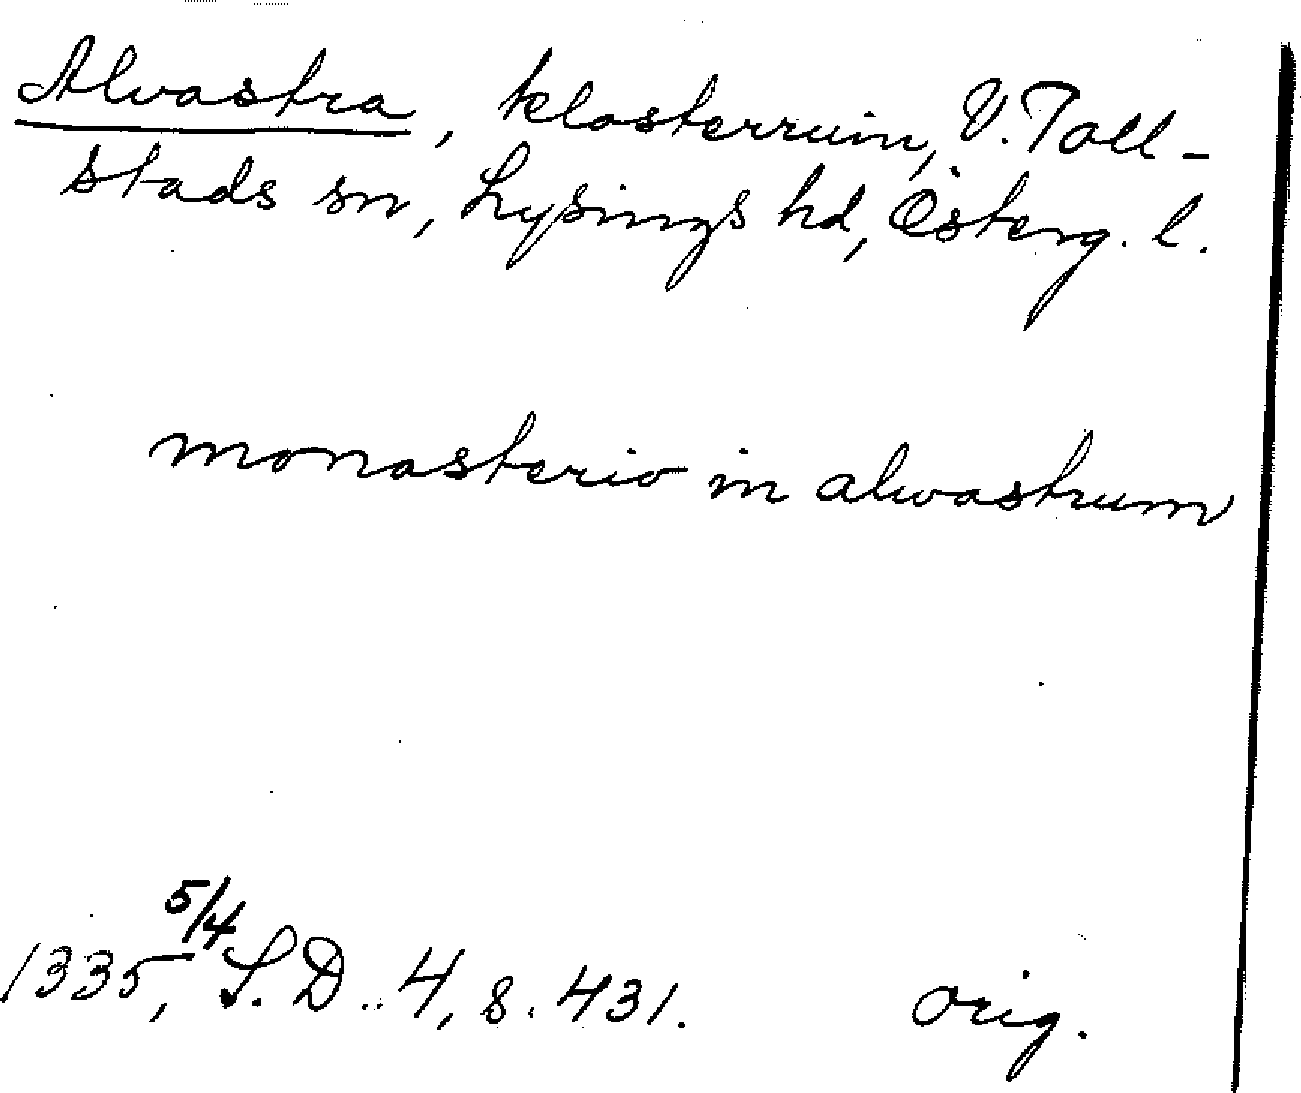 Alvastra, klosterruin, V. Toll-
stads sn, Lysings hd, Österg. l.
monasterio in alwastrum
1335, 5/4 S.D. 4, s. 431. orig.